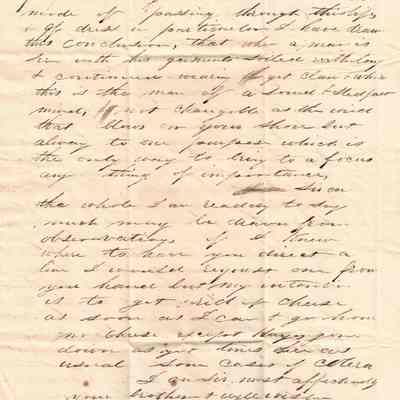 mode of passing through this life
& of dress in particular I have drawn
this conclusion, that when a man is
his garments soiled with long
& continued wearing & yet clean & white
this is the man of a sound & stedfast
mind, not changable as the wind
that blows on your shore but
always to one purpose which is
the only way to bring to a focus
any thing of importance,
Sir on
the whole I am ready to say
much may be drawn from
observations if I knew
where to have you direct a
line I would request one from
your hand but my intention
is to get rid of these
as soon as I can & go home
no these except
down as yet times here as
usual some cases of Cholera
I am Sir most affectionately
your brother & wellwisher